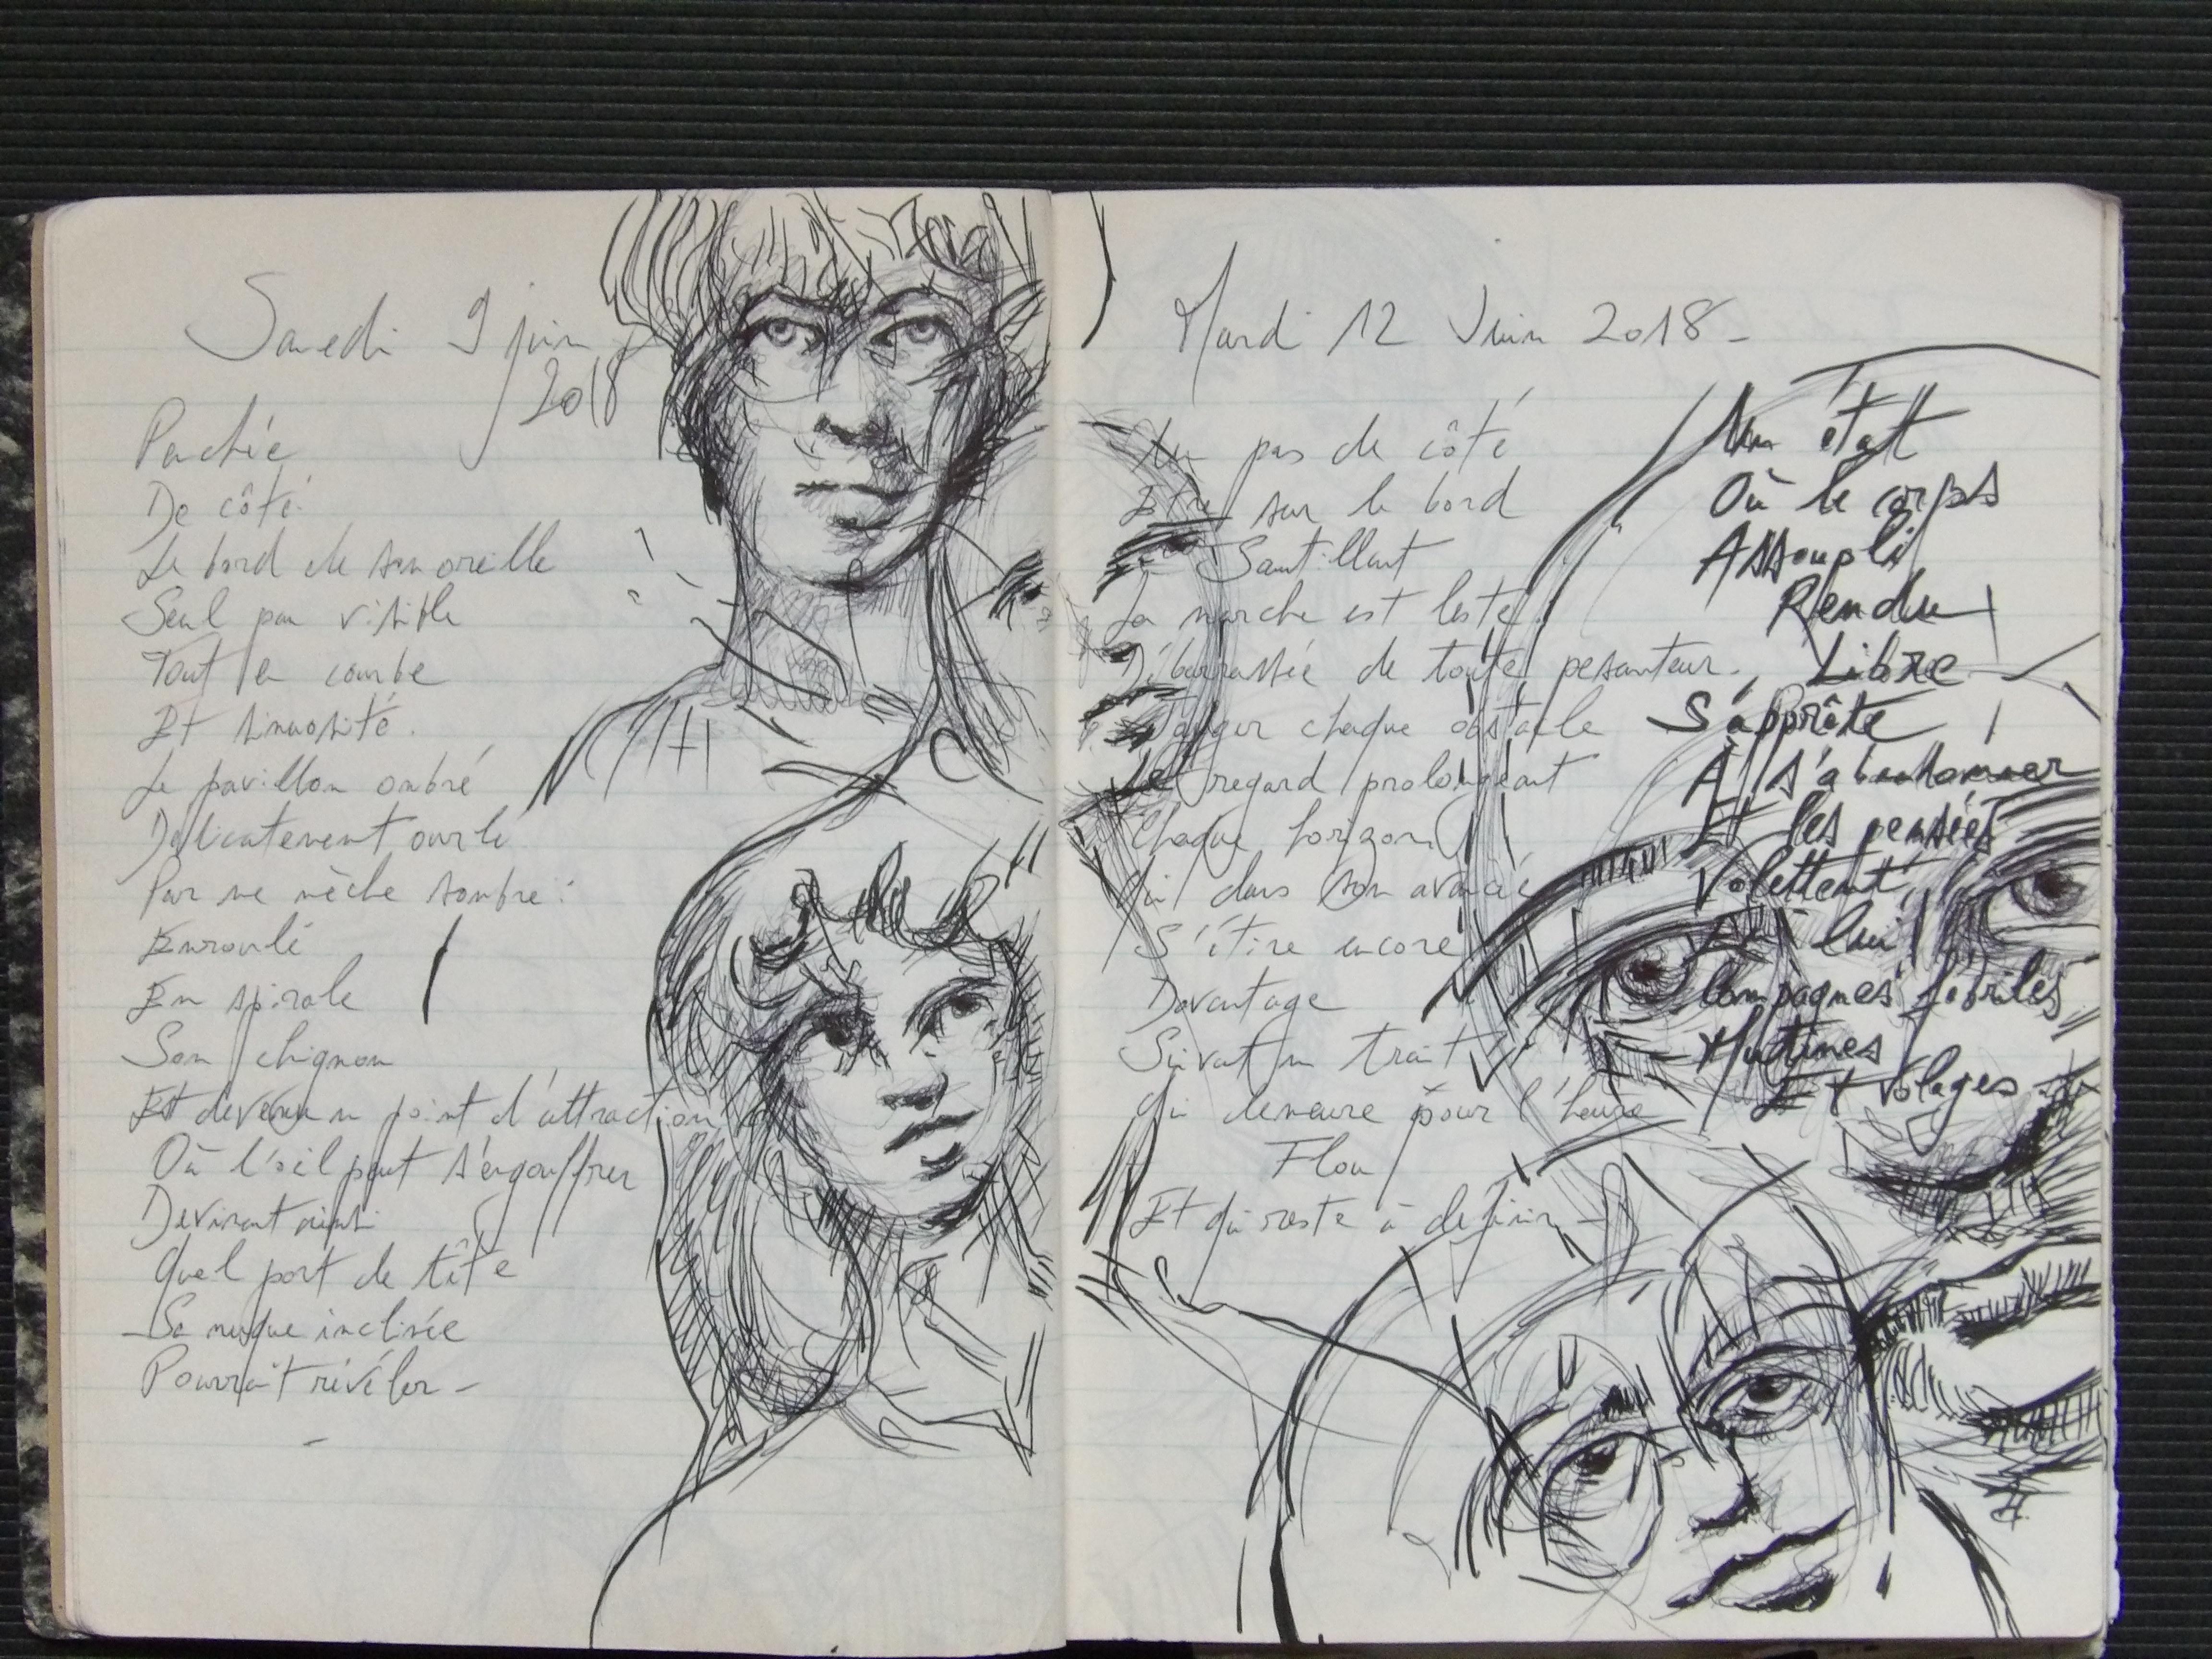 Samedi 9 juin
2018
Penchée
De côté.
Le bord de son oreille
Seul par visible
Tout en courbe
Et sinuosité.
Le pavillon ombré
Délicatement ourlé
Par une mèche sombre :
Enroulé
En spirale
Son chignon
Est devenu un point d'attraction
Où l'œil peut s'engouffrer
Devinant ainsi
Quel port de tête
Sa nuque inclinée
Pourrait révéler -
-
Mardi 12 Juin 2018 -
Un pas de côté
Etre sur le bord
Sautillant
La marche est leste.
Débarrassée de toute pesanteur.
chaque obstacle
Le regard prolongeant
Chaque horizon
Qui dans son avancée
S'étire encore
Davantage
Suivant un trait
Qui demeure pour l'heure
Flou
Et qui reste à définir -
Un état
Où le corps
Assoupli
Rendu
Libre
S'apprête
À s'abandonner
Et les pensées
Volettent,
lui
Compagnes fébriles
Mutines
Et Volages -